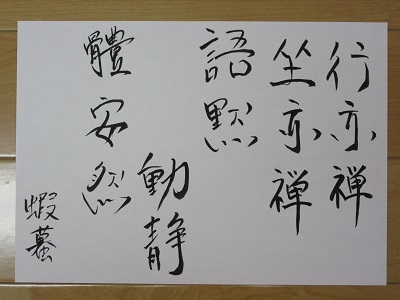 行亦禅
坐亦禅
語黙
動静
體安然
蝦蟇